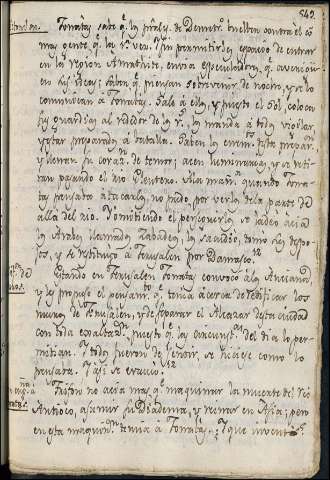 542
Jonatás sabe q. los prales. de Demetr. buelben contra él cõ
mas gente q. la 1ª vez. sin permitirles espacio de entrar
en la region Amathite, envia especuladores, q. averiguen
sus ideas; saben q. piensan sobrevenir de noche, y se lo
comunican à Jonatás. Sale à ellos, y puesto el Sol, coloca
sus guardias al rededor de los rs. las manda à todos vigilar,
y estar preparados à batalla. Saben los enem. esta prepar.
y llenan su coraz. de temor; acen luminarias, y se reti-
ran pasando el rio Eleutero. Mas mañn. quando Jona-
tás pensaba atacarlos, no pudo, por verlos de la parte de
allá del rio. Y omitiendo el perseguirlos, se ladeó acia
los Arabes llamados Zabadeos, los sacudió, tomó sus despo-
jos, y se restituyó à Jerusalen por Damasco.
Estando en Jerusalen Jonatás convocó à los Ancianos
y les propuso el pensam.to q. tenia acerca de reedificar los
muros de Jerusalen, y de separar el Alcazar de esta ciudad
con toda exactitud, puesto q. las circunst.as del dia lo per-
mitian. Y todos fueron de sentir, se hiciese como lo
pensaba. Y asi se executó.
Trifon no acia mas q. maquinar la muerte del Rei
Antioco, asumir su Diadema, y reinar en Asia; pero
en esta maquin. temia à Jonatás. Y que inventó?